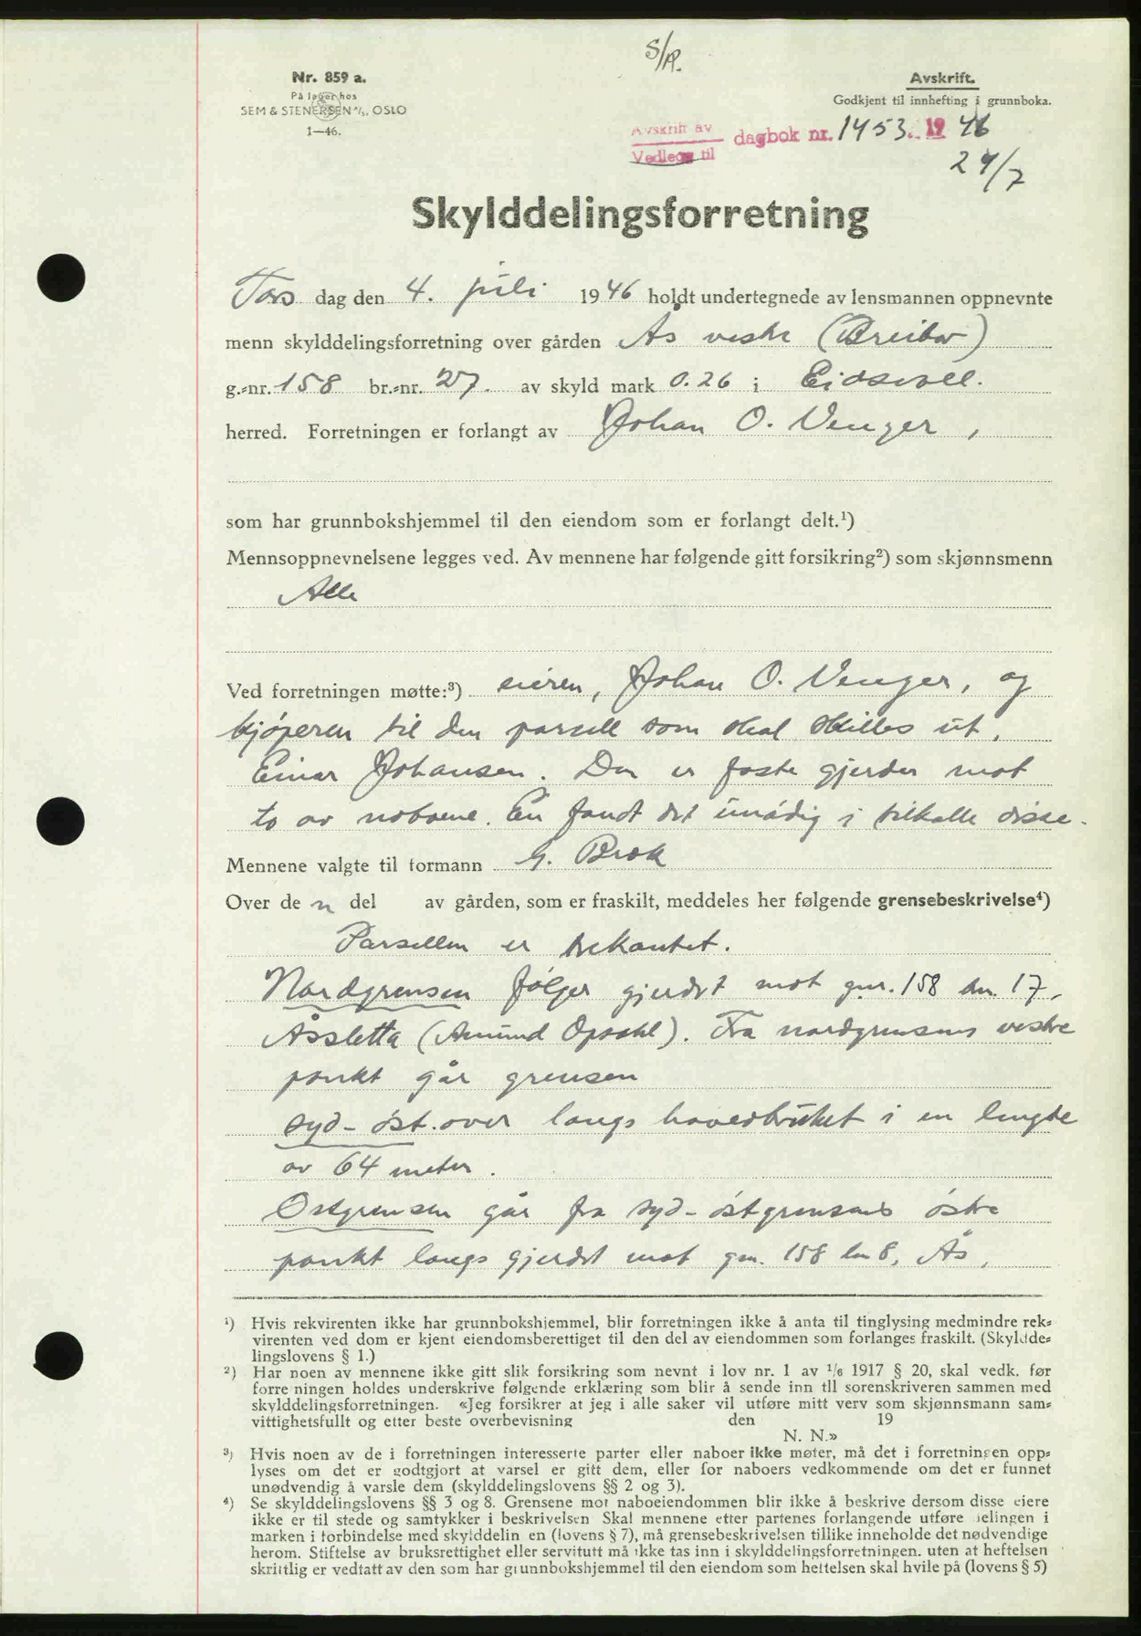 S/R.
Nr. 859 a.
På lager hos
SEM & STENERSEN A/S, OSLO
1—46.
Avskrift.
Godkjent til innhefting i grunnboka.
Avskrift av
Vedlegg til
dagbok nr. 1453. 19 46
24/7
Skylddelingsforretning
Tors dag den 4. juli 1946 holdt undertegnede av lensmannen oppnevnte
menn skylddelingsforretning over gården Ås vestre (Breibo)
g.-nr. 158 br.-nr. 27. av skyld mark 0.26 i Eidsvoll.
herred. Forretningen er forlangt av Johan O. Venger,
som har grunnbokshjemmel til den eiendom som er forlangt delt.¹)
Mennsoppnevnelsene legges ved. Av mennene har følgende gitt forsikring²) som skjønnsmenn
Alle
Ved forretningen møtte:³) eieren, Johan O. Venger, og
kjøperen til den parsell som skal skilles ut,
Einar Johansen. Der er faste gjerder mot
to av naboene. En fandt det unødig i tilkalle disse.
Mennene valgte til formann G. Brok
Over de n del av gården, som er fraskilt, meddeles her følgende grensebeskrivelse⁴)
Parsellen er trekantet.
Nordgrensen følger gjerdet mot gnr. 158 bn. 17,
Åssletta (Amund Opsahl). Fra nordgrensens vestre
punkt går grensen
syd-øst.over langs hovedbruket i en lengde
av 64 meter.
Østgrensen går fra syd-østgrensens østre
punkt langs gjerdet mot gnr. 158 bn 8, Ås,
¹) Hvis rekvirenten ikke har grunnbokshjemmel, blir forretningen ikke å anta til tinglysing medmindre rek-
virenten ved dom er kjent eiendomsberettiget til den del av eiendommen som forlanges fraskilt. (Skyldde-
lingslovens § 1.)
²) Har noen av mennene ikke gitt slik forsikring som nevnt i lov nr. 1 av ¹/₆ 1917 § 20, skal vedk. før
forretningen holdes underskrive følgende erklæring som blir å sende inn til sorenskriveren sammen med
skylddelingsforretningen. «Jeg forsikrer at jeg i alle saker vil utføre mitt verv som skjønnsmann sam-
vittighetsfullt og etter beste overbevisning den 19
N. N.»
³) Hvis noen av de i forretningen interesserte parter eller naboer ikke møter, må det i forretningen opp-
lyses om det er godtgjort at varsel er gitt dem, eller for naboers vedkommende om det er funnet
unødvendig å varsle dem (skylddelingslovens §§ 2 og 3).
⁴) Se skylddelingslovens §§ 3 og 8. Grensene mot naboeiendommen blir ikke å beskrive dersom disse eiere
ikke er til stede og samtykker i beskrivelsen Skal mennene etter partenes forlangende utføre delingen i
marken i forbindelse med skylddelin en (lovens § 7), må grensebeskrivelsen tillike inneholde det nødvendige
herom. Stiftelse av bruksrettighet eller servitutt må ikke tas inn i skylddelingsforretningen. uten at heftelsen
skriftlig er vedtatt av den som har grunnbokshjemmel til den eiendom som heftelsen skal hvile på (lovens § 5)